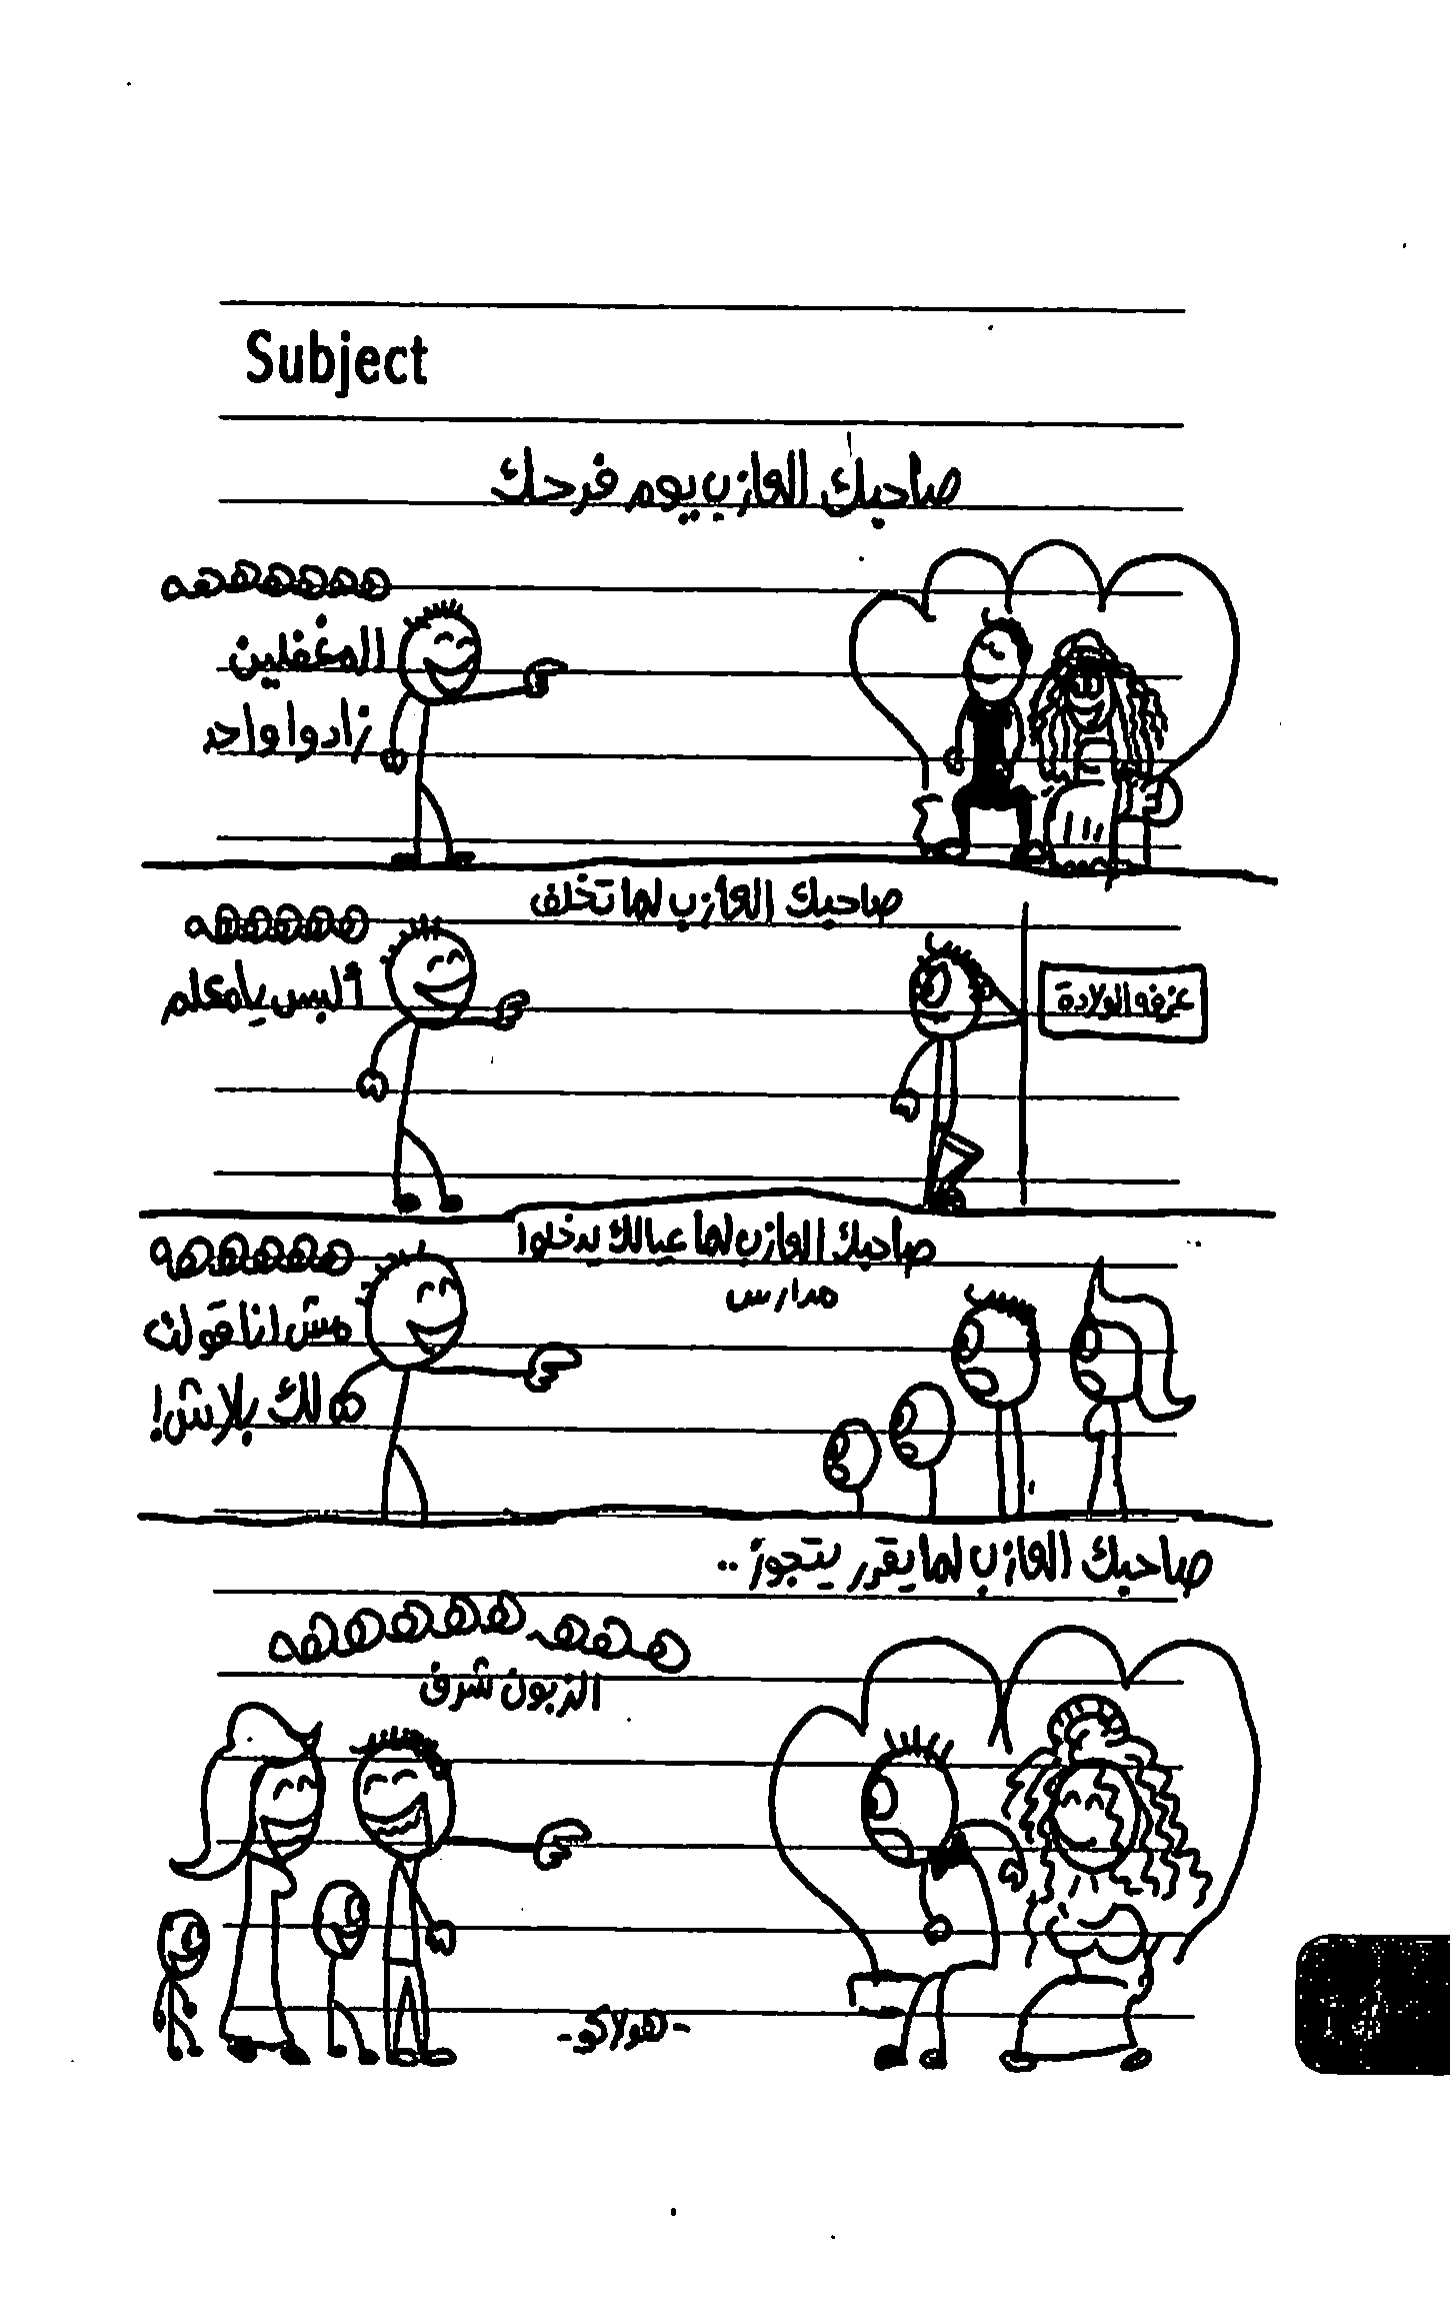 Subject
صاحبك العازب يوم فرحك
هههههههه
المغفلين
زادوا واحد
صاحبك العازب لما تخلف
ههههههه
ألبس يا معلم
غرفه الولادة
صاحبك العازب لما عيالك يدخلوا
مدارس
ههههههه
مش انا قولت
لك بلاش!
صاحبك العازب لما يقرر يتجوز ..
هههههههههه
الزبون شرف
-هولاكو-